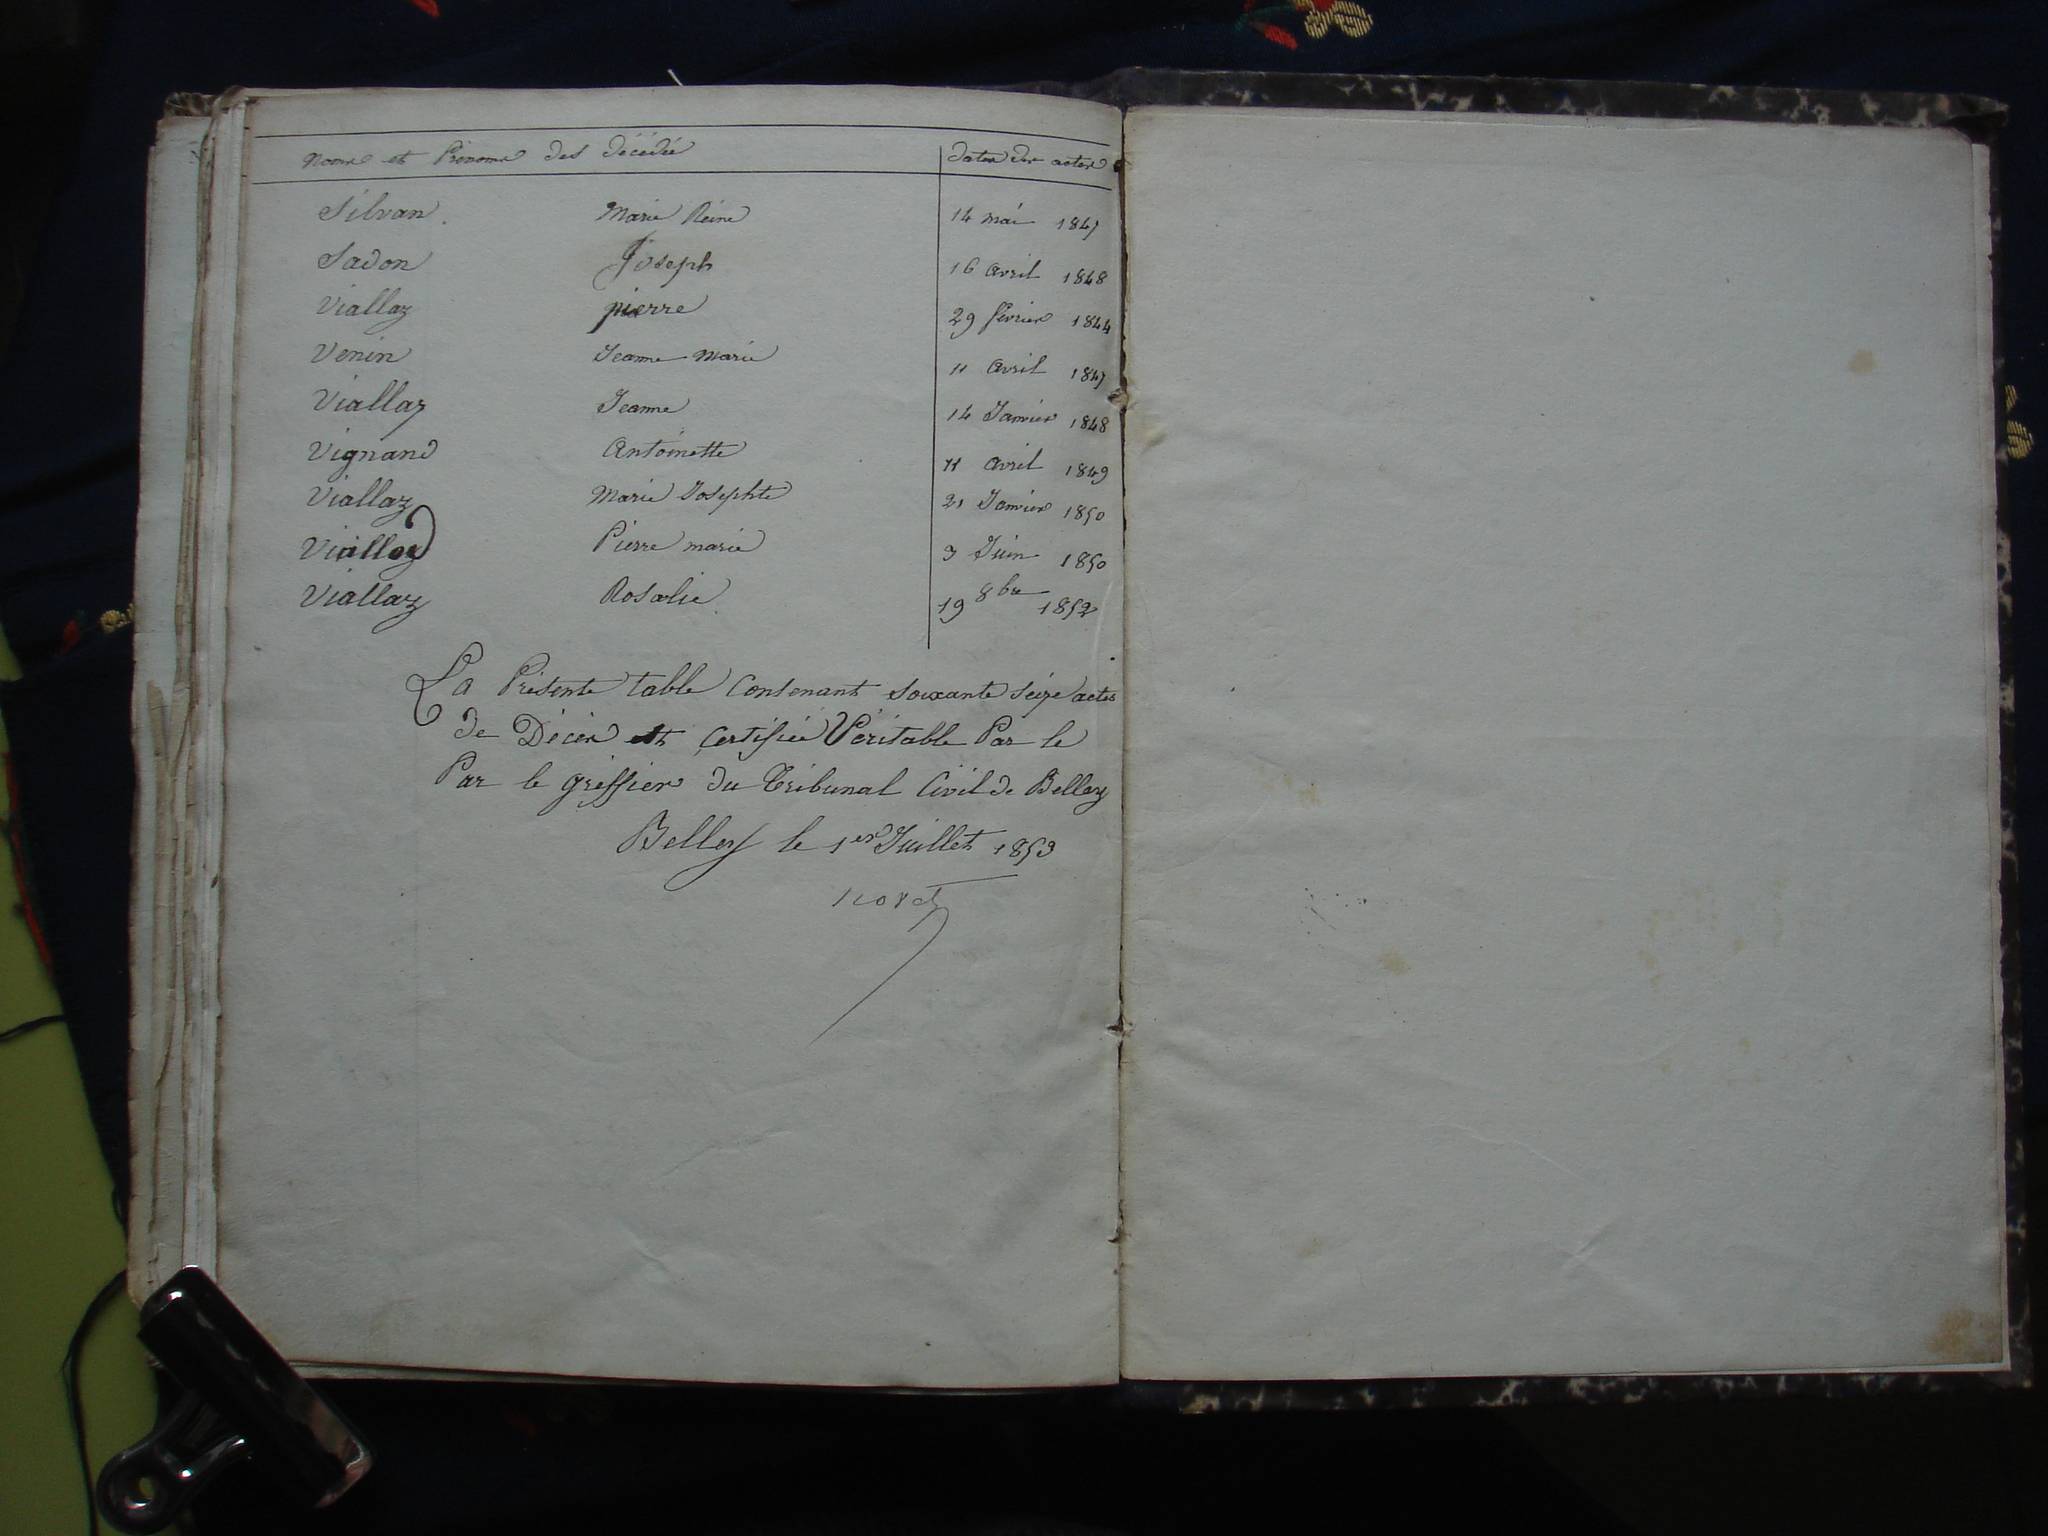 Noms et Prénoms des décédés dates des actes
Silvan. Marie Reine 14 mai 1847
Sadon Joseph 16 avril 1848
Viallaz pierre 29 février 1844
Venin Jeanne Marie 11 avril 1847
Viallaz Jeanne 14 Janvier 1848
Vignand Antoinette 11 avril 1849
Viallaz Marie Josephte 21 Janvier 1850
Viallaz Pierre marie 3 Juin 1850
Viallaz Rosalie 19 8bre 1852
La Présente table Contenant soixante seize actes
de Décès est Certifiée Véritable Par le
Par le greffier du Tribunal Civil de Belley
Belley le 1er Juillet 1853